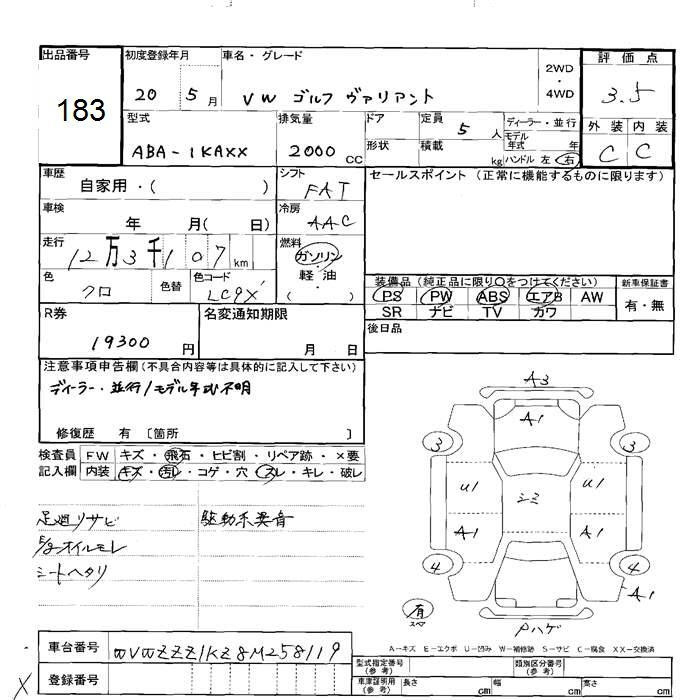 出品番号 初度登録年月 車名・グレード 2WD・4WD 評価点
183 20 5月 VW ゴルフ ヴァリアント 3.5
型式 排気量 ドア 定員 ディーラー・並行 外装 内装
ABA-1KAXX 2000cc 5人 モデル年式 年 C C
形状 積載 kg ハンドル 左 右
車歴 シフト セールスポイント (正常に機能するものに限ります)
自家用・( ) FAT
車検 冷房
年 月( 日) AAC
走行 燃料
12万3千107km ガソリン・軽油( )
色 色替 色コード 装備品 (純正品に限り○をつけてください) 新車保証書
クロ LC9X PS PW ABS エアB AW 有・無
SR ナビ TV カワ
R券 名変通知期限 後日品
19300円 月 日
注意事項申告欄 (不具合内容等は具体的に記入して下さい)
ディーラー・並行/モデル年式不明
修復歴 有 〔箇所 〕
検査員 FW キズ・飛石・ヒビ割・リペア跡・×要
記入欄 内装 キズ・汚レ・コゲ・穴・スレ・キレ・破レ
足廻リサビ 駆動系異音
E/gオイルモレ
シートヘタリ
A3
A1
3 3
U1 シミ U1
A1 A1
4 4
A1
有
スペア
Pハゲ
A-キズ E-エクボ U-凹み W-補修跡 S-サビ C-腐食 XX-交換済
車台番号 WVWZZZ1KZ8M258119
型式指定番号(参考) 類別区分番号(参考)
X 登録番号
車庫証明用(参考) 長さ cm 幅 cm 高さ cm